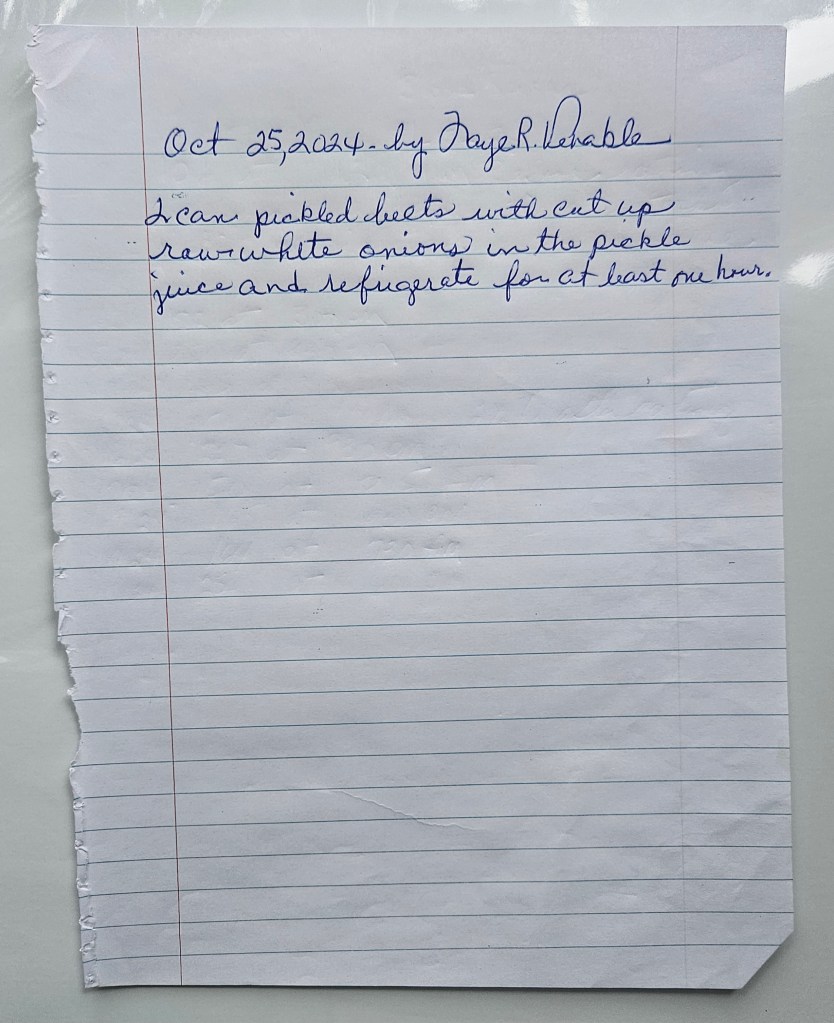 Oct 25, 2024 - by Faye R. Venable
2 can pickled beets with cut up
raw white onions in the pickle
juice and refrigerate for at least one hour.